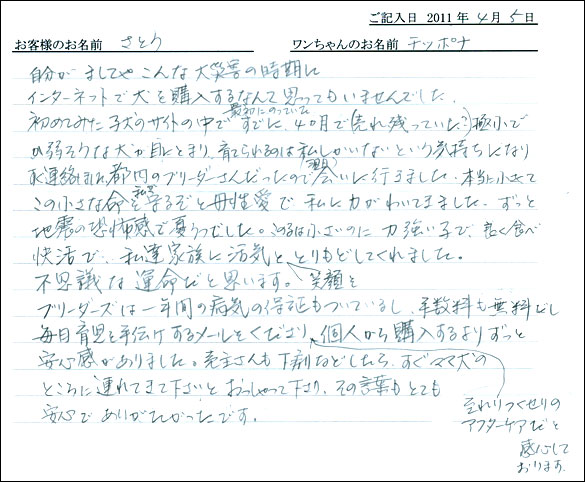 ご記入日 2011年4月5日
お客様のお名前 さとう ワンちゃんのお名前 チッポナ
自分がましてやこんな大災害の時期に
インターネットで犬を購入するなんて思ってもいませんでした。
最初にのっていた
初めてみた子犬のサイトの中ですでに、4ヶ月で(売れ残っていた?)極小で
か弱そうな犬が目にとまり、育てられるのは私しかいないという気持ちになり
翌日
即連絡したら都内のブリーダーさんだったので会いに行きました。本当に小さくて
私が
この小さな命を守るぞと母性愛で私に力がわいてきました。ずっと
地震の恐怖感で憂うつでした。このこは小さいのに力強い子で、良く食べ
快活で、私達家族に活気ととりもどしてくれました。
笑顔を
不思議な運命だと思います。
ブリーダーズは一年間の病気の保証もついているし、手数料も無料だし
毎日育児を手伝けするメールをくださり、個人から購入するよりずっと
安心感がありました。売主さんも下痢などしたら、すぐママ犬の
ところに連れてきて下さいとおっしゃって下さり、その言葉もとても
安心でありがたかったです。
至れりつくせりの
アフターケアだと
感心して
おります。